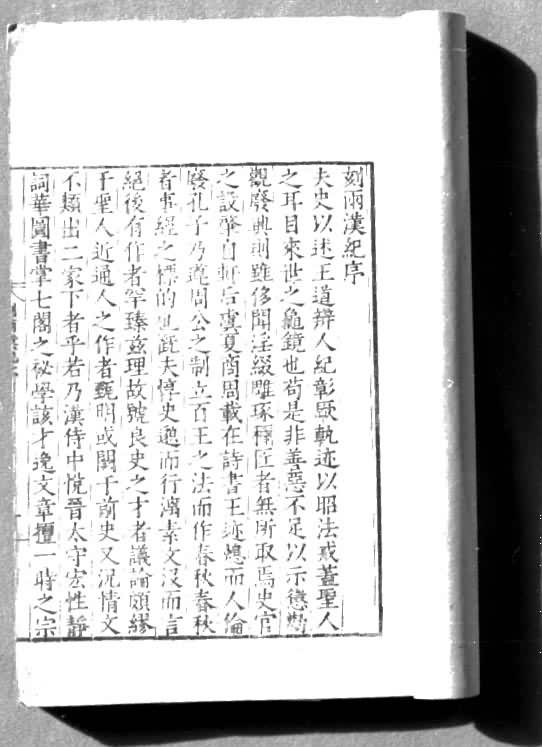 刻兩漢紀序
夫史以述王道辯人紀彰厥軌迹以昭法戒蓋聖人
之耳目來世之龜鏡也苟是非善惡不足以示懲勸
觀廢典則雖侈聞淫綴雕琢穠匠者無所取焉史官
之設肇自軒后虞夏商周載在詩書王迹熄而人倫
廢孔子乃遵周公之制立百王之法而作春秋春秋
者事經之標的也既夫惇史遞而行漓素文沒而言
絕後有作者罕臻茲理故號良史之才者議論頗繆
于聖人近通人之作者甄明或闕于前史又況情文
不類出二家下者乎若乃漢侍中悅晉太守宏性靜
詞華圖書掌七閣之祕學該才逸文章擅一時之宗